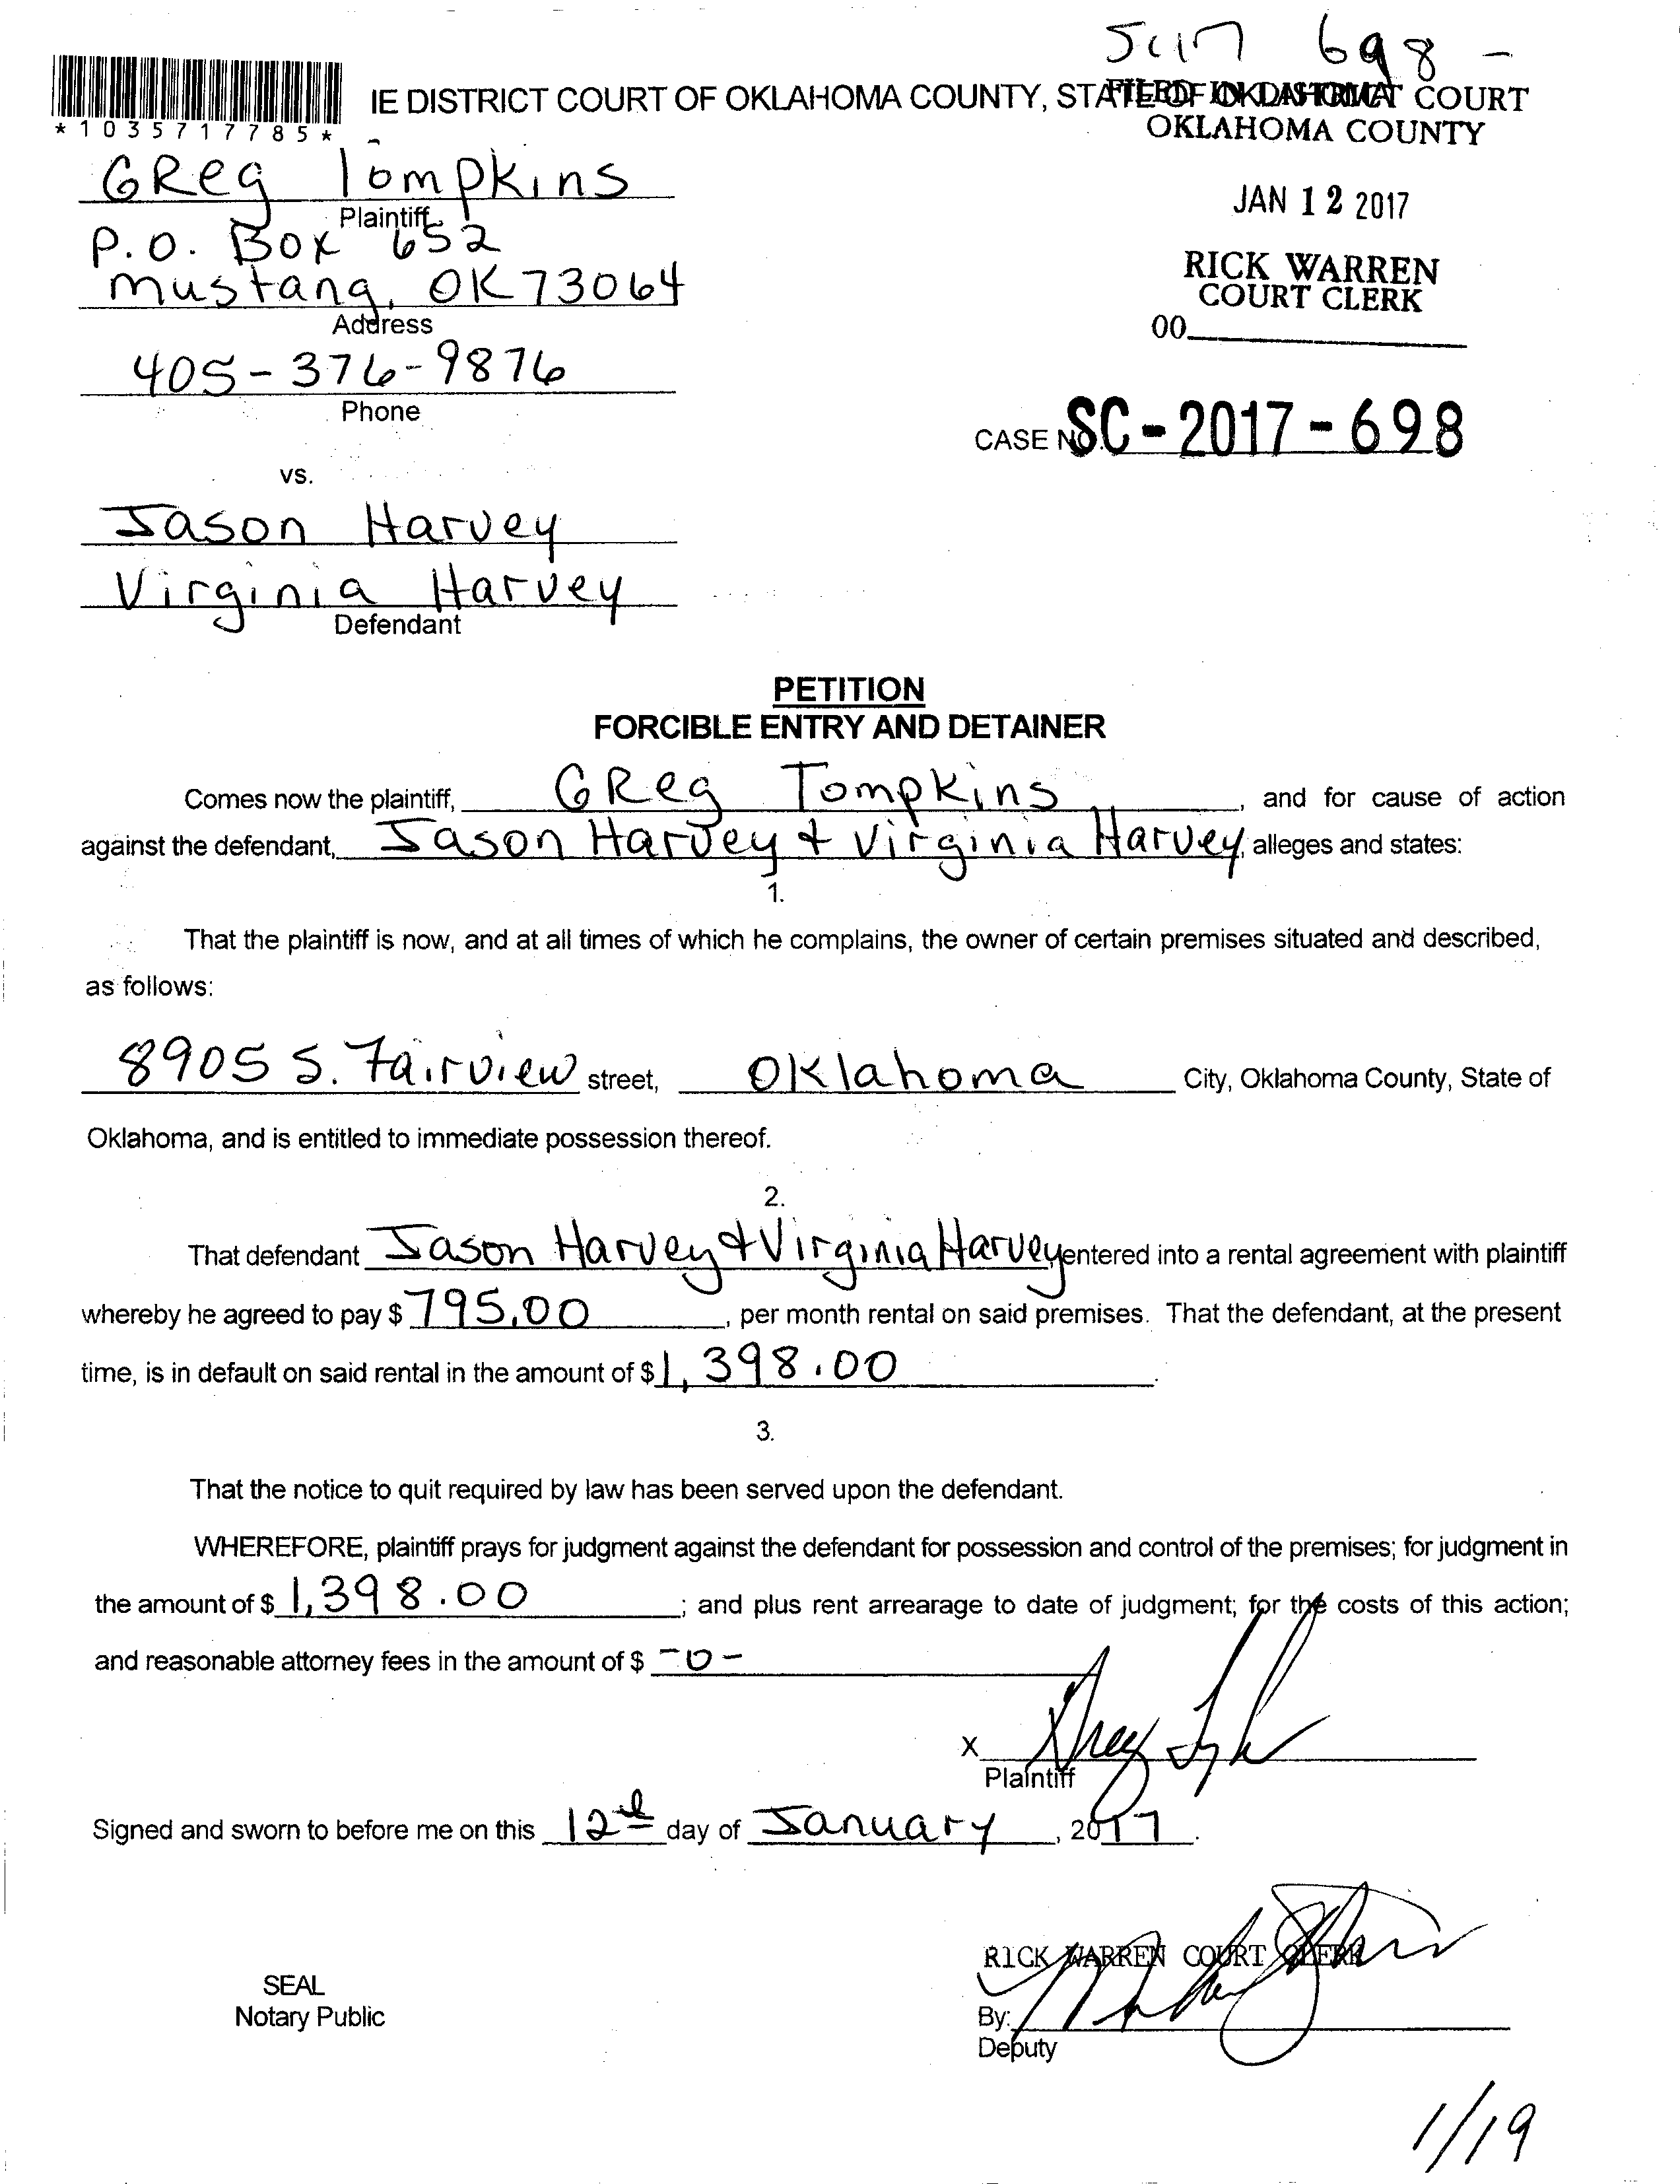 698 -
IE DISTRICT COURT OF OKLAHOMA COUNTY, STATE OF OKLAHOMA
FILED IN DISTRICT COURT
OKLAHOMA COUNTY
*1035717785*
GReg Tompkins
Plaintiff
JAN 12 2017
P.O. Box 652
mustang, OK 73064
Address
RICK WARREN
COURT CLERK
00
405-376-9876
Phone
CASE NO. SC-2017-698
vs.
Jason Harvey
Virginia Harvey
Defendant
PETITION
FORCIBLE ENTRY AND DETAINER
Comes now the plaintiff, GReg Tompkins, and for cause of action
against the defendant, Jason Harvey & Virginia Harvey, alleges and states:
1.
That the plaintiff is now, and at all times of which he complains, the owner of certain premises situated and described,
as follows:
8905 S. Fairview street, Oklahoma City, Oklahoma County, State of
Oklahoma, and is entitled to immediate possession thereof.
2.
That defendant Jason Harvey & Virginia Harvey entered into a rental agreement with plaintiff
whereby he agreed to pay $ 795.00, per month rental on said premises. That the defendant, at the present
time, is in default on said rental in the amount of $ 1,398.00.
3.
That the notice to quit required by law has been served upon the defendant.
WHEREFORE, plaintiff prays for judgment against the defendant for possession and control of the premises; for judgment in
the amount of $ 1,398.00; and plus rent arrearage to date of judgment; for the costs of this action;
and reasonable attorney fees in the amount of $ -0-
X
Plaintiff
Signed and sworn to before me on this 12th day of January, 2017.
RICK WARREN COURT CLERK
SEAL
Notary Public
By:
Deputy
1/19